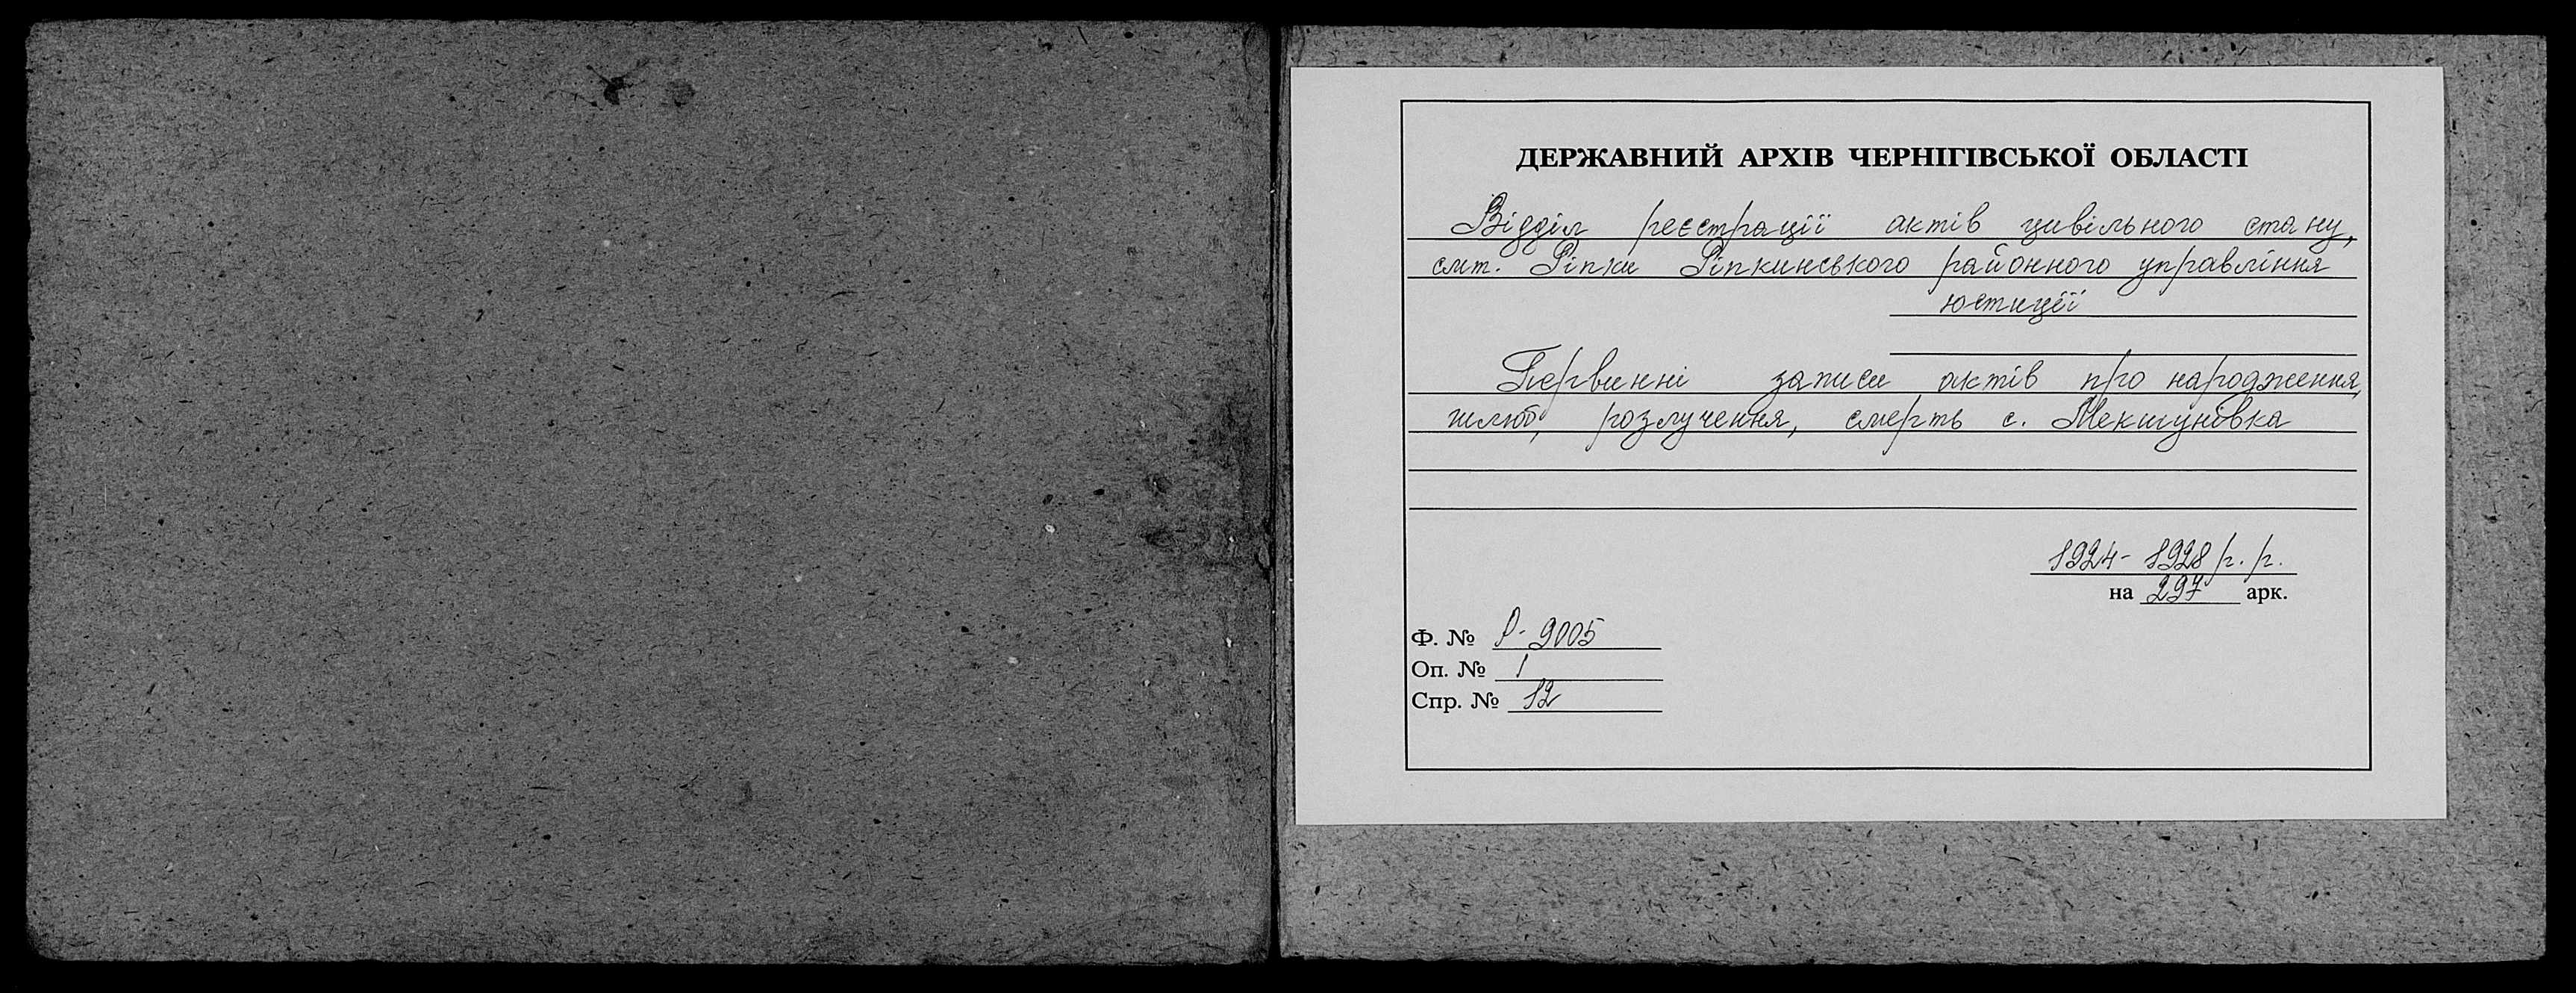 ДЕРЖАВНИЙ АРХІВ ЧЕРНІГІВСЬКОЇ ОБЛАСТІ
Відділ реєстрації актів цивільного стану,
смт. Ріпки Ріпкинського районного управління
юстиції
Первинні записи актів про народження,
шлюб, розлучення, смерть с. Мекшунівка
1924-1928 р.р.
на 297 арк.
Ф. № Р-9005
Оп. № 1
Спр. № 12